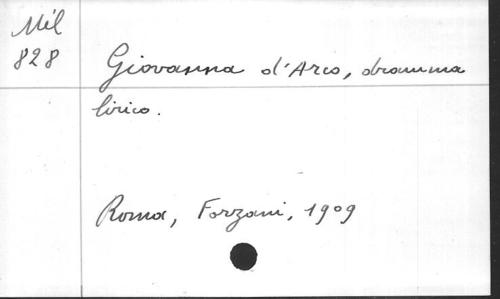 Mél
828
Giovanna d'Arco, dramma
lirico.
Roma, Forzani, 1909